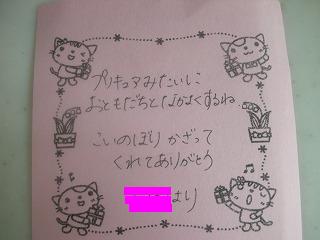 プリキュアみたいに
おともだちとなかよくするね
こいのぼり かざって
くれてありがとう
はり